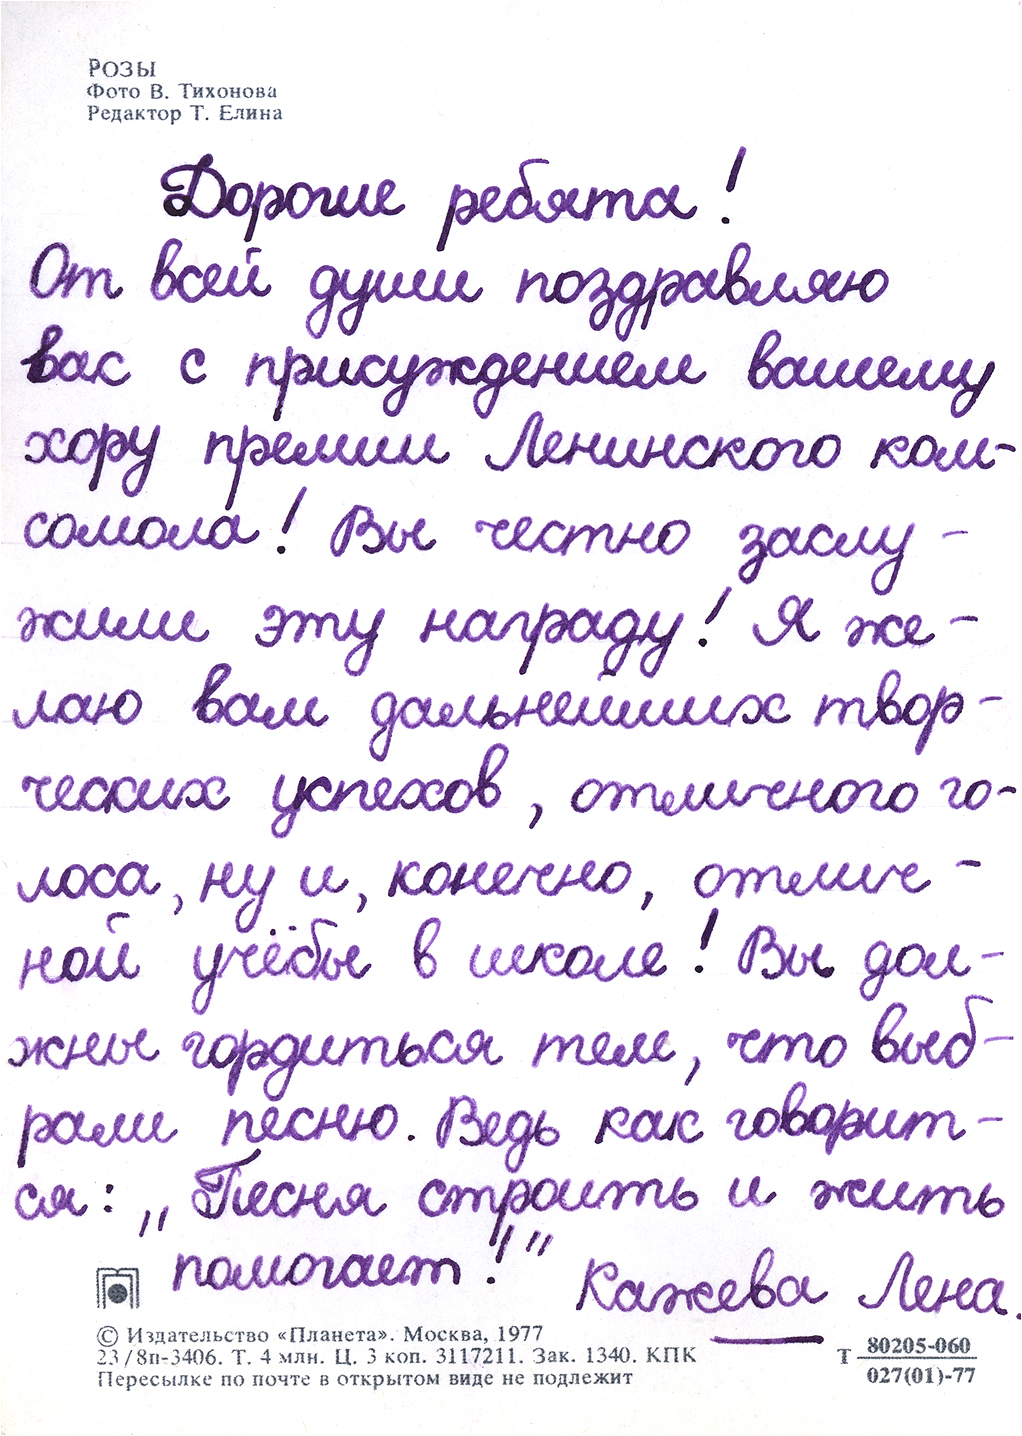 РОЗЫ
Фото В. Тихонова
Редактор Т. Елина
Дорогие ребята!
От всей души поздравляю
вас с присуждением вашему
хору премии Ленинского ком-
сомола! Вы честно заслу-
жили эту награду! Я же-
лаю вам дальнейших твор-
ческих успехов, отличного го-
лоса, ну и, конечно, отлич-
ной учёбы в школе! Вы дол-
жны гордиться тем, что выб-
рали песню. Ведь как говорит-
ся: „Песня строить и жить
помогает!"
Кажева Лена.
© Издательство «Планета». Москва, 1977
23/8п-3406. Т. 4 млн. Ц. 3 коп. 3117211. Зак. 1340. КПК
Пересылке по почте в открытом виде не подлежит
Т 80205-060
027(01)-77